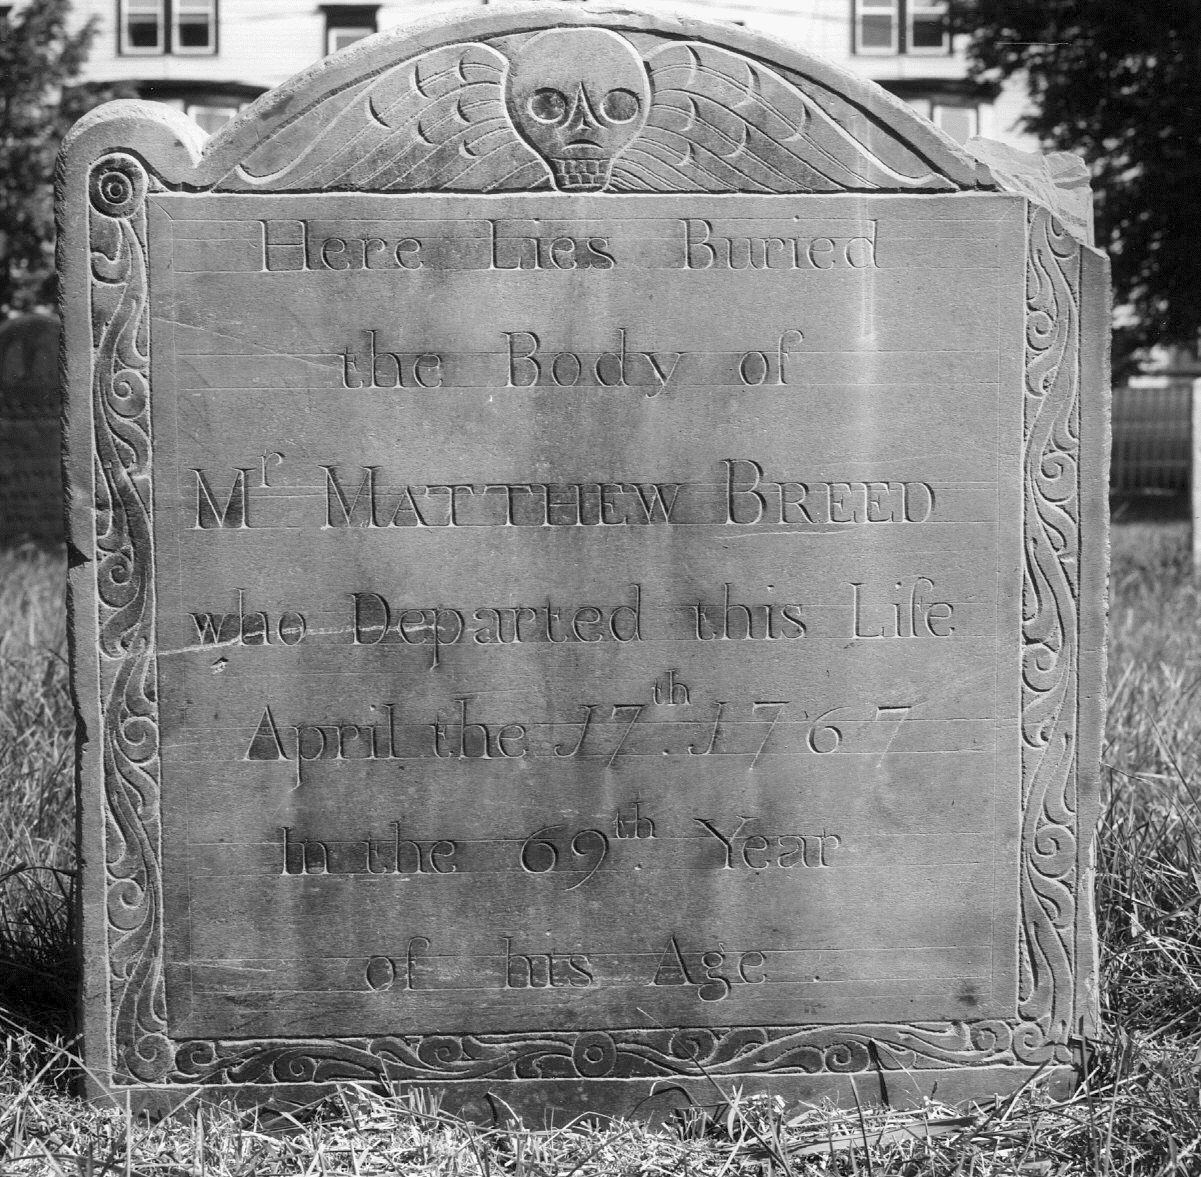 Here Lies Buried
the Body of
Mr MATTHEW BREED
who Departed this Life
April the 17th. 1767
In the 69th. Year
of his Age.